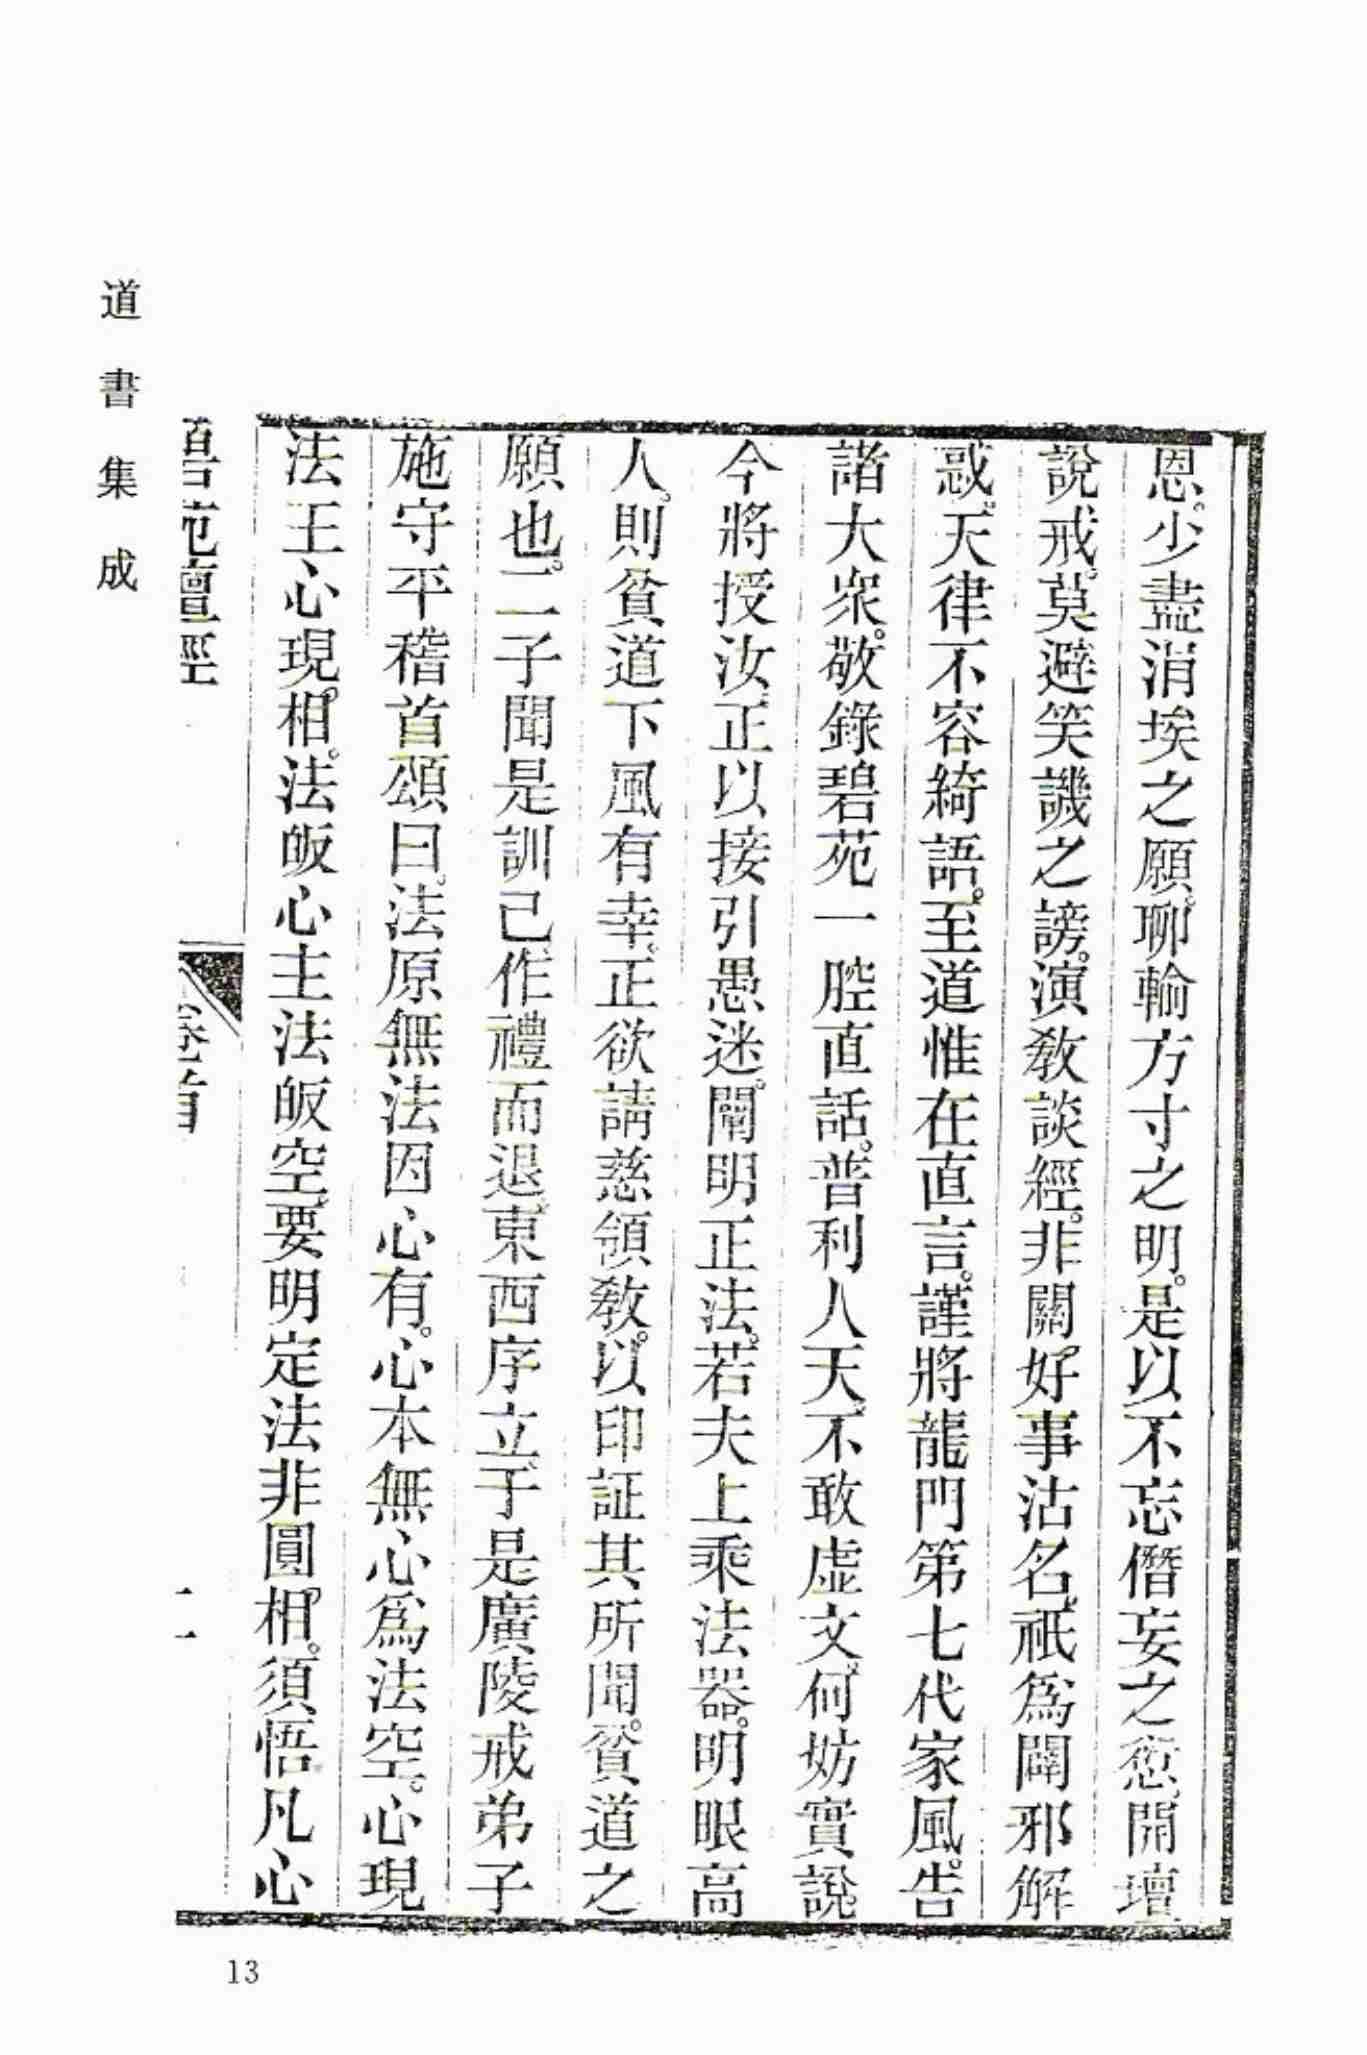 恩。少盡涓埃之願。聊輸方寸之明。是以不忘僭妄之愆。開壇
說戒。莫避笑譏之謗。演教談經。非關好事沽名。祇爲闢邪解
惑。天律不容綺語。至道惟在直言。謹將龍門第七代家風。告
諸大衆。敬錄碧苑一腔直話。普利人天。不敢虛文。何妨實說。
今將授汝。正以接引愚迷。闡明正法。若夫上乘法器。明眼高
人。則貧道下風有幸。正欲請慈領教。以印証其所聞。貧道之
願也。二子聞是訓已。作禮而退。東西序立。于是廣陵戒弟子
施守平稽首頌曰。法原無法因心有。心本無心爲法空。心現
法王心現相。法皈心主法皈空。要明定法非圓相。須悟凡心
碧苑壇經
卷首
二
道書集成
13